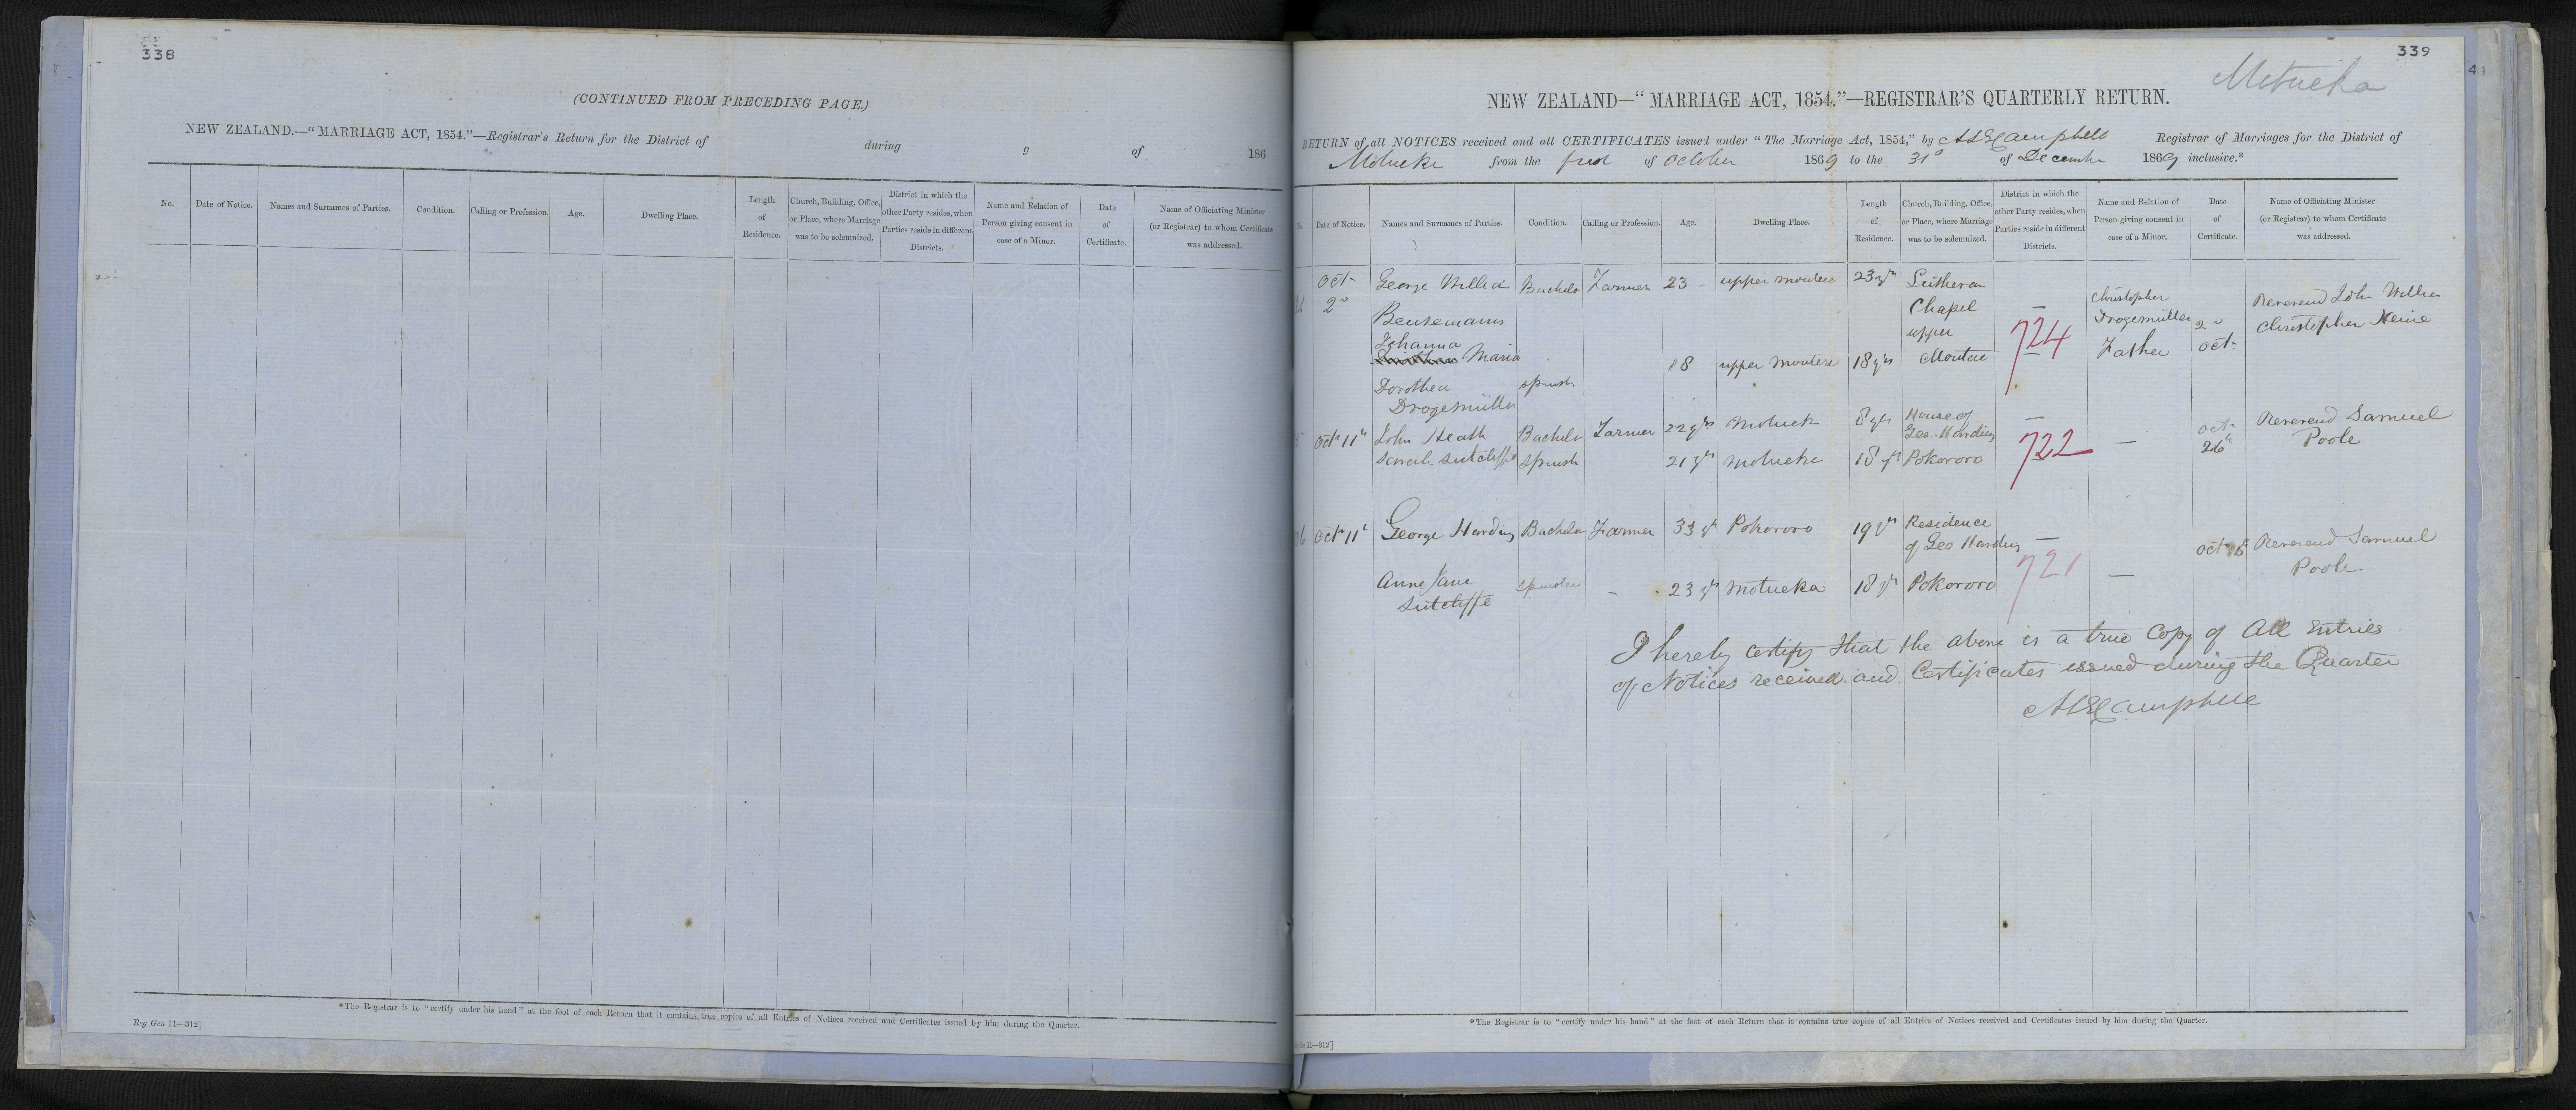 338
(CONTINUED FROM PRECEDING PAGE.)
NEW ZEALAND.—"MARRIAGE ACT, 1854."—Registrar's Return for the District of during g of 186
No. Date of Notice. Names and Surnames of Parties. Condition. Calling or Profession. Age. Dwelling Place. Length of Residence. Church, Building, Office, or Place, where Marriage was to be solemnized. District in which the other Party resides, when Parties reside in different Districts. Name and Relation of Person giving consent in case of a Minor. Date of Certificate. Name of Officiating Minister (or Registrar) to whom Certificate was addressed.
*The Registrar is to "certify under his hand" at the foot of each Return that it contains true copies of all Entries of Notices received and Certificates issued by him during the Quarter.
Reg Gen 11—312]
339
41
Motueka
NEW ZEALAND—"MARRIAGE ACT, 1854."—REGISTRAR'S QUARTERLY RETURN.
RETURN of all NOTICES received and all CERTIFICATES issued under "The Marriage Act, 1854," by Campbell Registrar of Marriages for the District of
Motueka from the first of October 1869 to the 31st of December 1869 inclusive.*
Date of Notice. Names and Surnames of Parties. Condition. Calling or Profession. Age. Dwelling Place. Length of Residence. Church, Building, Office, or Place, where Marriage was to be solemnized. District in which the other Party resides, when Parties reside in different Districts. Name and Relation of Person giving consent in case of a Minor. Date of Certificate. Name of Officiating Minister (or Registrar) to whom Certificate was addressed.
Oct George William Bachelor Farmer 23 upper moutere 23 yrs Lutheran
2d Bensemann Chapel — Christopher Reverend John William
Johanna upper 724 Drogemüller 2d Christopher Heine
Maria 18 upper Moutere 18 yrs Moutere — Father Oct
Dorothea Spinster
Drogemüller
Oct 11th John Heath Bachelor Farmer 22 yrs Motueka 8 yrs House of Geo. Harding — Oct 26th Reverend Samuel Poole
Sarah Sutcliffe Spinster 21 yrs Motueka 18 yrs Pokororo 722 —
Oct 11th George Harding Bachelor Farmer 33 yrs Pokororo 19 yrs Residence of Geo Harding — Oct Reverend Samuel Poole
Anne Jane Sutcliffe Spinster — 23 yrs Motueka 18 yrs Pokororo 721 —
I hereby certify that the above is a true Copy of All Entries
of Notices received and Certificates issued during the Quarter
Campbell
*The Registrar is to "certify under his hand" at the foot of each Return that it contains true copies of all Entries of Notices received and Certificates issued by him during the Quarter.
11—312]